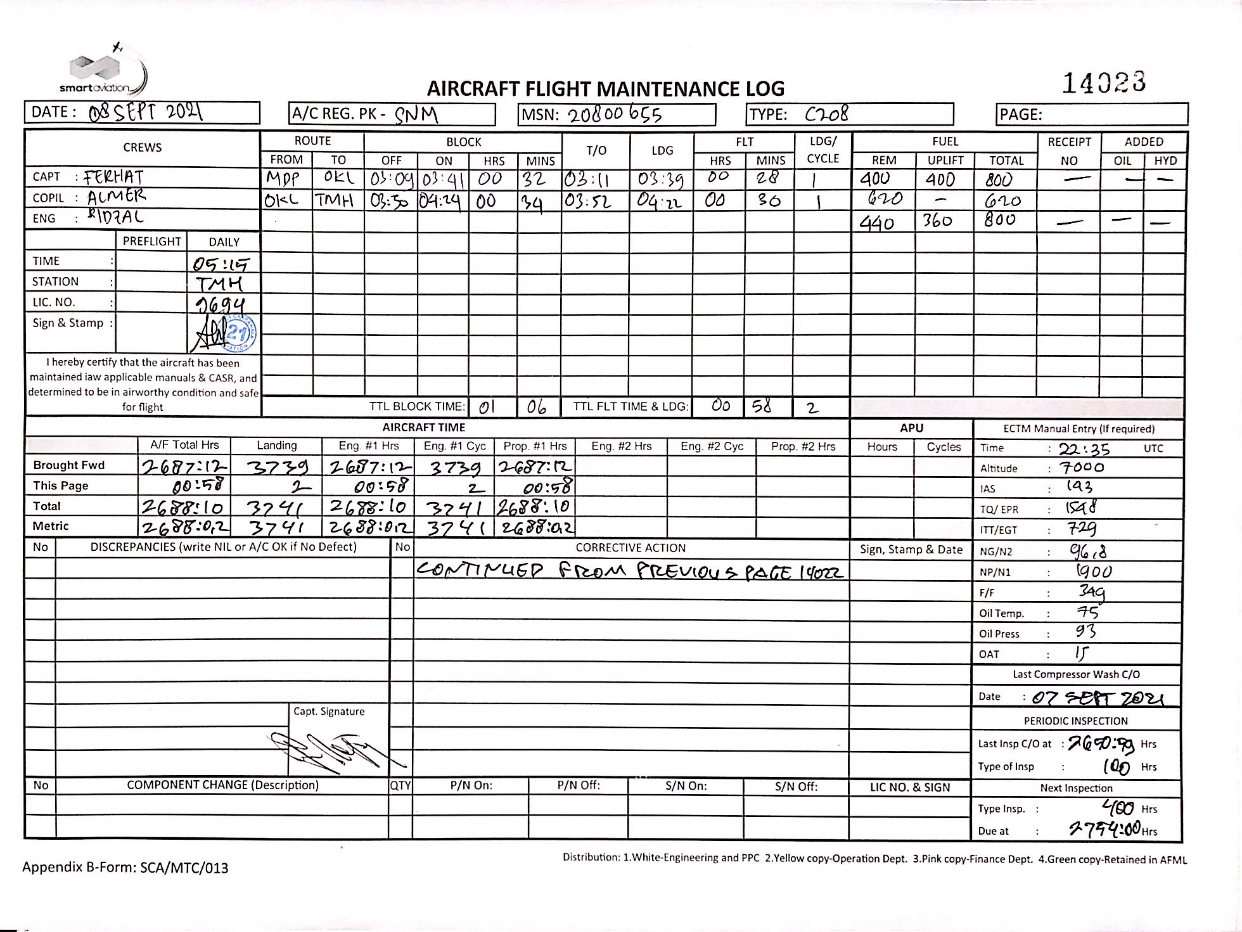 smartaviation
AIRCRAFT FLIGHT MAINTENANCE LOG
14023
DATE : 08 SEPT 2021 A/C REG. PK - SNM MSN: 20800655 TYPE: C208 PAGE:
CREWS ROUTE BLOCK T/O LDG FLT LDG/ CYCLE FUEL RECEIPT NO ADDED
FROM TO OFF ON HRS MINS HRS MINS REM UPLIFT TOTAL OIL HYD
CAPT : FERHAT MDP OKL 03:09 03:41 00 32 03:11 03:39 00 28 1 400 400 800 — — —
COPIL : ALMER OKL TMH 03:50 04:24 00 34 03:52 04:22 00 30 1 620 - 620
ENG : RIDZAL 440 360 800 — — —
PREFLIGHT DAILY
TIME : 05:15
STATION : TMH
LIC. NO. : 9694
Sign & Stamp : 21
I hereby certify that the aircraft has been
maintained iaw applicable manuals & CASR, and
determined to be in airworthy condition and safe
for flight
TTL BLOCK TIME: 01 06 TTL FLT TIME & LDG: 00 58 2
AIRCRAFT TIME APU ECTM Manual Entry (If required)
A/F Total Hrs Landing Eng. #1 Hrs Eng. #1 Cyc Prop. #1 Hrs Eng. #2 Hrs Eng. #2 Cyc Prop. #2 Hrs Hours Cycles
Brought Fwd 2687:12 3739 2687:12 3739 2687:12
This Page 00:58 2 00:58 2 00:58
Total 2688:10 3741 2688:10 3741 2688:10
Metric 2688:0,2 3741 2688:0,2 3741 2688:0,2
Time : 22:35 UTC
Altitude : 7000
IAS : 143
TQ/ EPR : 1548
ITT/EGT : 729
NG/N2 : 96,8
NP/N1 : 1900
F/F : 349
Oil Temp. : 75
Oil Press : 93
OAT : 15
No DISCREPANCIES (write NIL or A/C OK if No Defect) No CORRECTIVE ACTION Sign, Stamp & Date
CONTINUED FROM PREVIOUS PAGE 14022
Last Compressor Wash C/O
Date : 07 SEPT 2021
PERIODIC INSPECTION
Last Insp C/O at : Hrs
Type of Insp : 100 Hrs
Capt. Signature
No COMPONENT CHANGE (Description) QTY P/N On: P/N Off: S/N On: S/N Off: LIC NO. & SIGN
Next Inspection
Type Insp. : 400 Hrs
Due at : 2754:00 Hrs
Appendix B-Form: SCA/MTC/013
Distribution: 1.White-Engineering and PPC 2.Yellow copy-Operation Dept. 3.Pink copy-Finance Dept. 4.Green copy-Retained in AFML